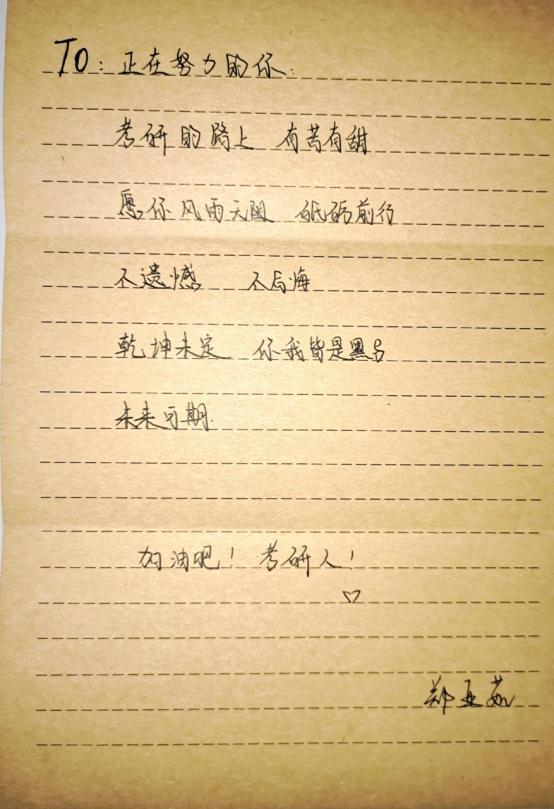 TO：正在努力的你：
考研的路上 有苦有甜
愿你风雨无阻 砥砺前行
不遗憾 不后悔
乾坤未定 你我皆是黑马
未来可期.
加油吧！考研人！
♡
郑亚茹